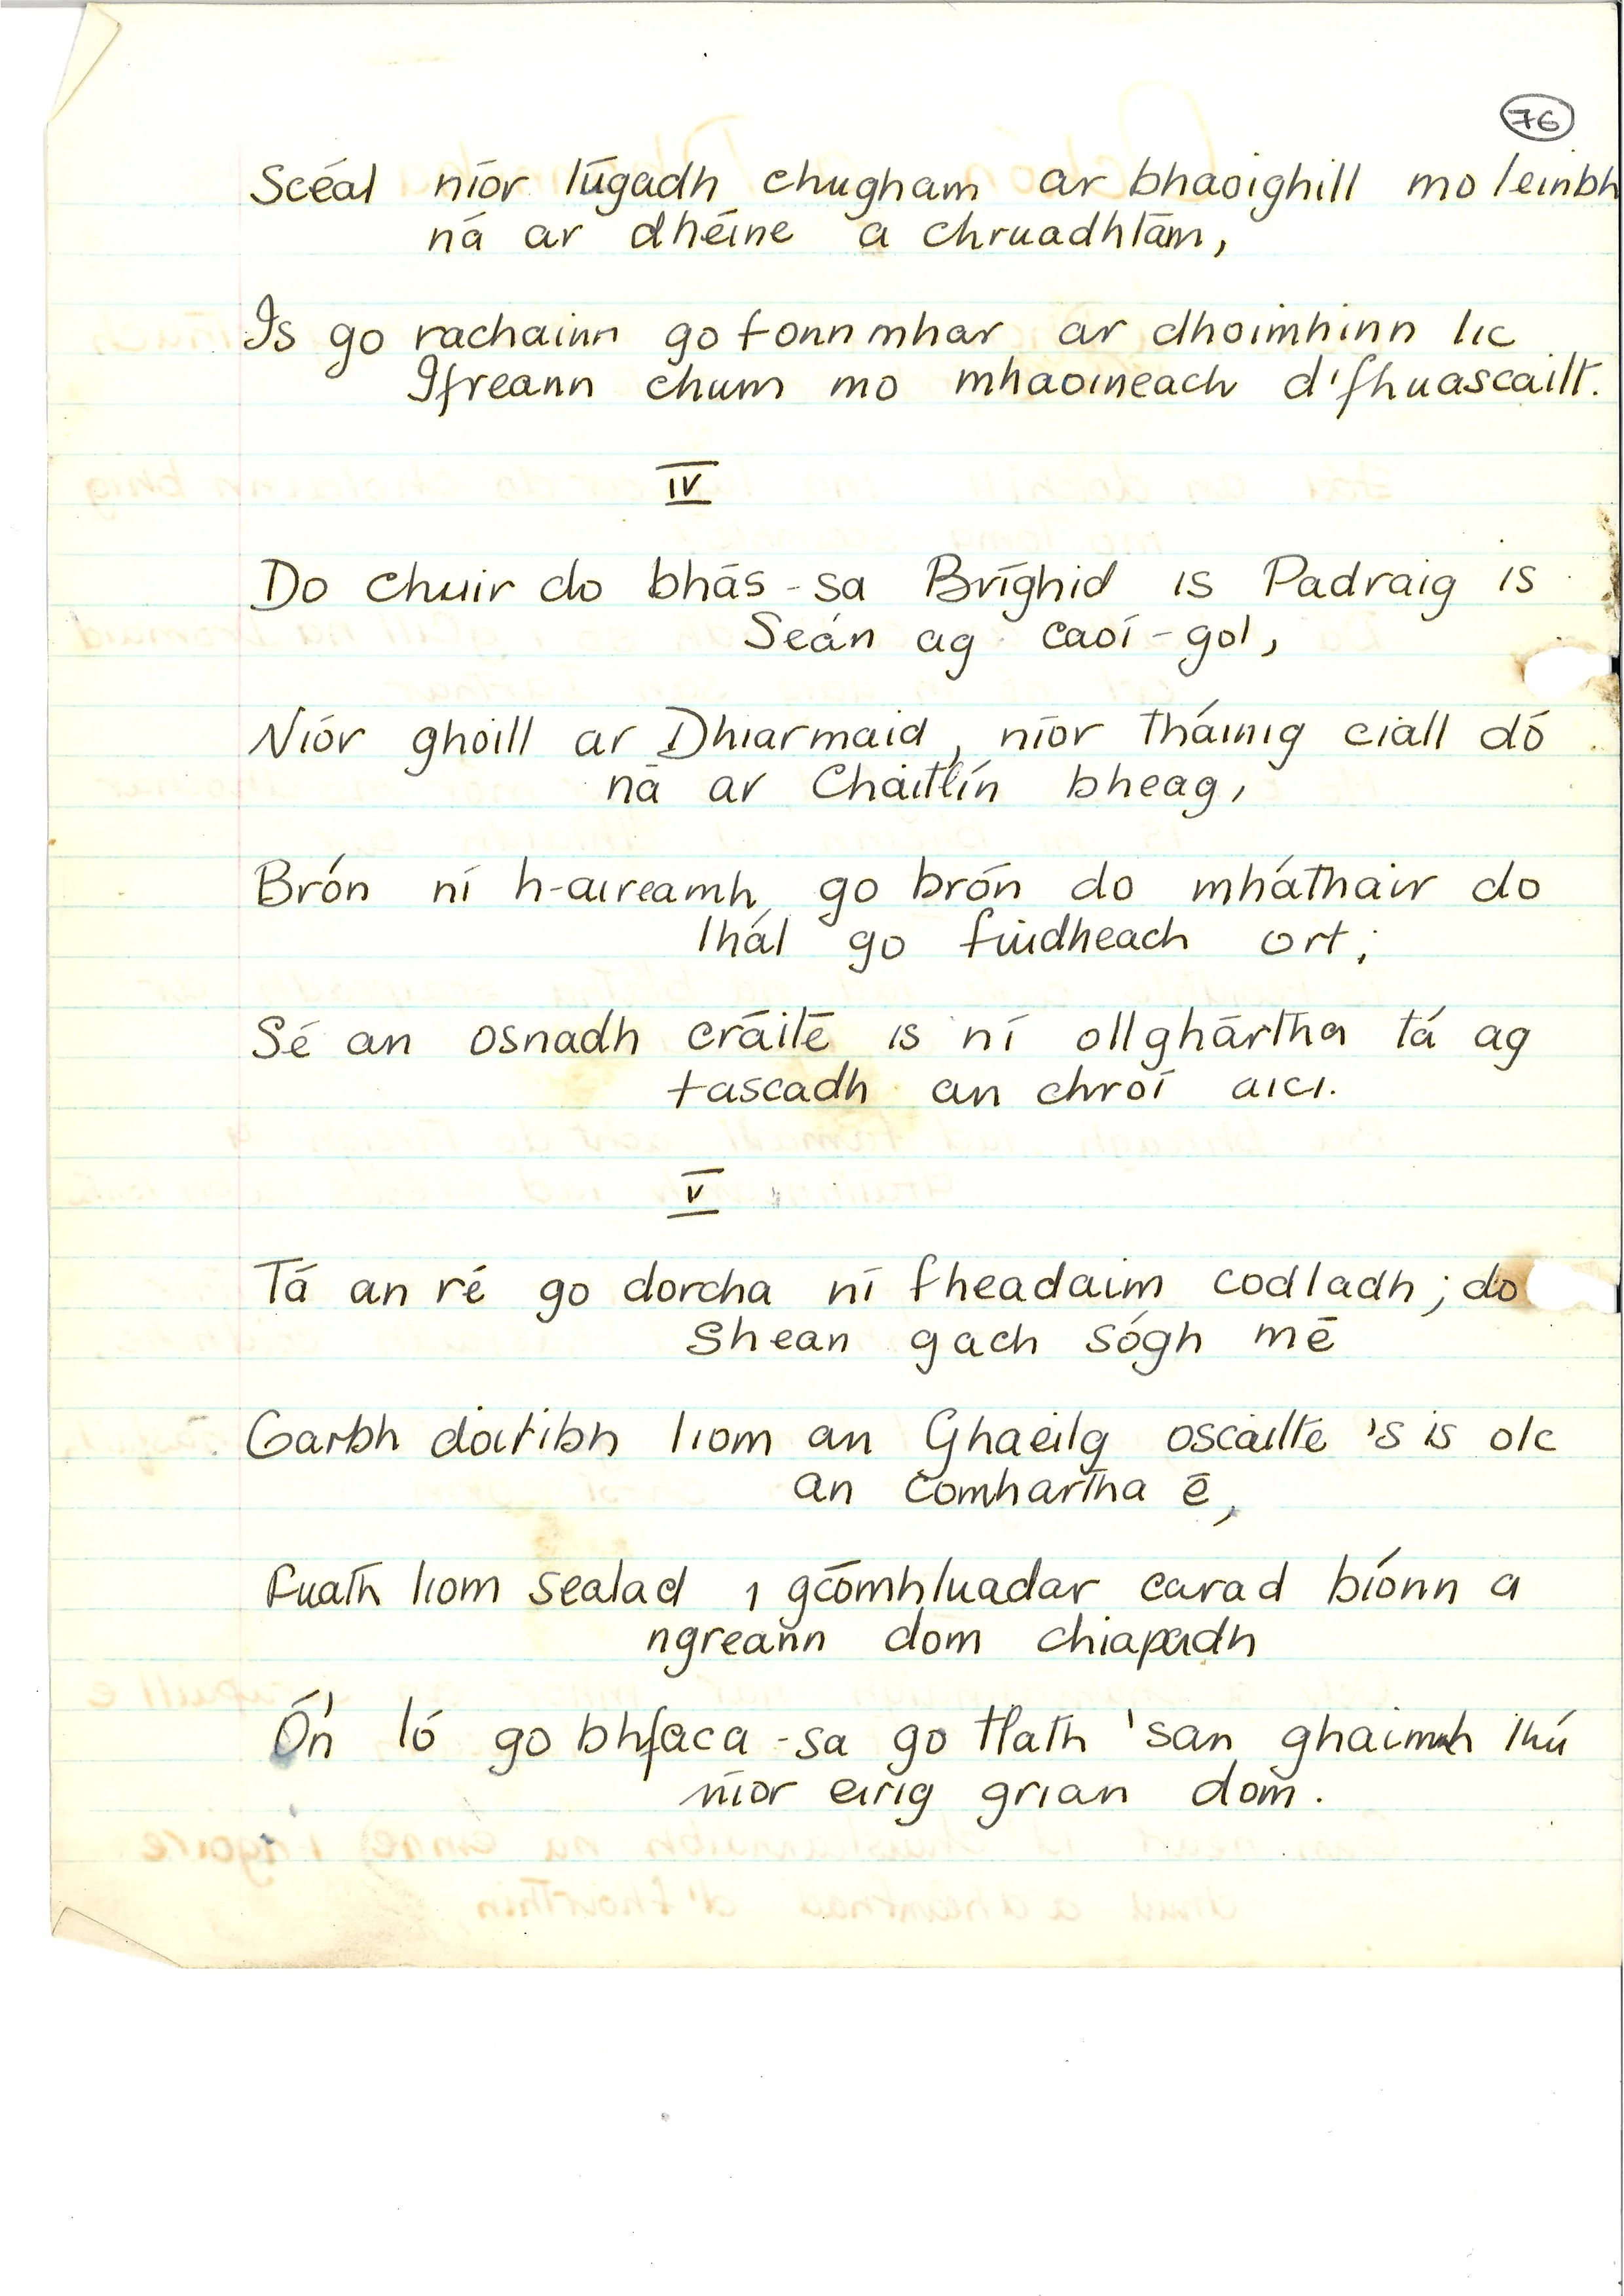 76
Scéal níor lúgadh chugham ar bhaoighill mo leinbh
ná ar dhéine a chruadhtám,
Is go rachainn go fonnmhar ar dhoimhinn lic
Ifreann chum mo mhaoineach d'fhuascailt.
IV
Do chuir do bhás-sa Bríghid is Padraig is
Seán ag caoí-gol,
Níór ghoill ar Dhiarmaid, níor tháinig ciall dó
ná ar Cháitlín bheag,
Brón ní h-aireamh go brón do mháthair do
thál go fiúdheach ort;
Sé an osnadh cráité is ní ollghártha tá ag
tascadh an chroí aici.
V
Tá an ré go dorcha ní fheadaim codladh; do
shean gach sógh mé
Garbh doitibh liom an Ghaeilg oscailte 's is olc
an comhartha é,
Fuath liom sealad i gcómhluadar carad bíonn a
ngreann dom chiapadh
Ó'n ló go bhfaca-sa go tlath 'san ghaimh thú
níor eirig grian dom.